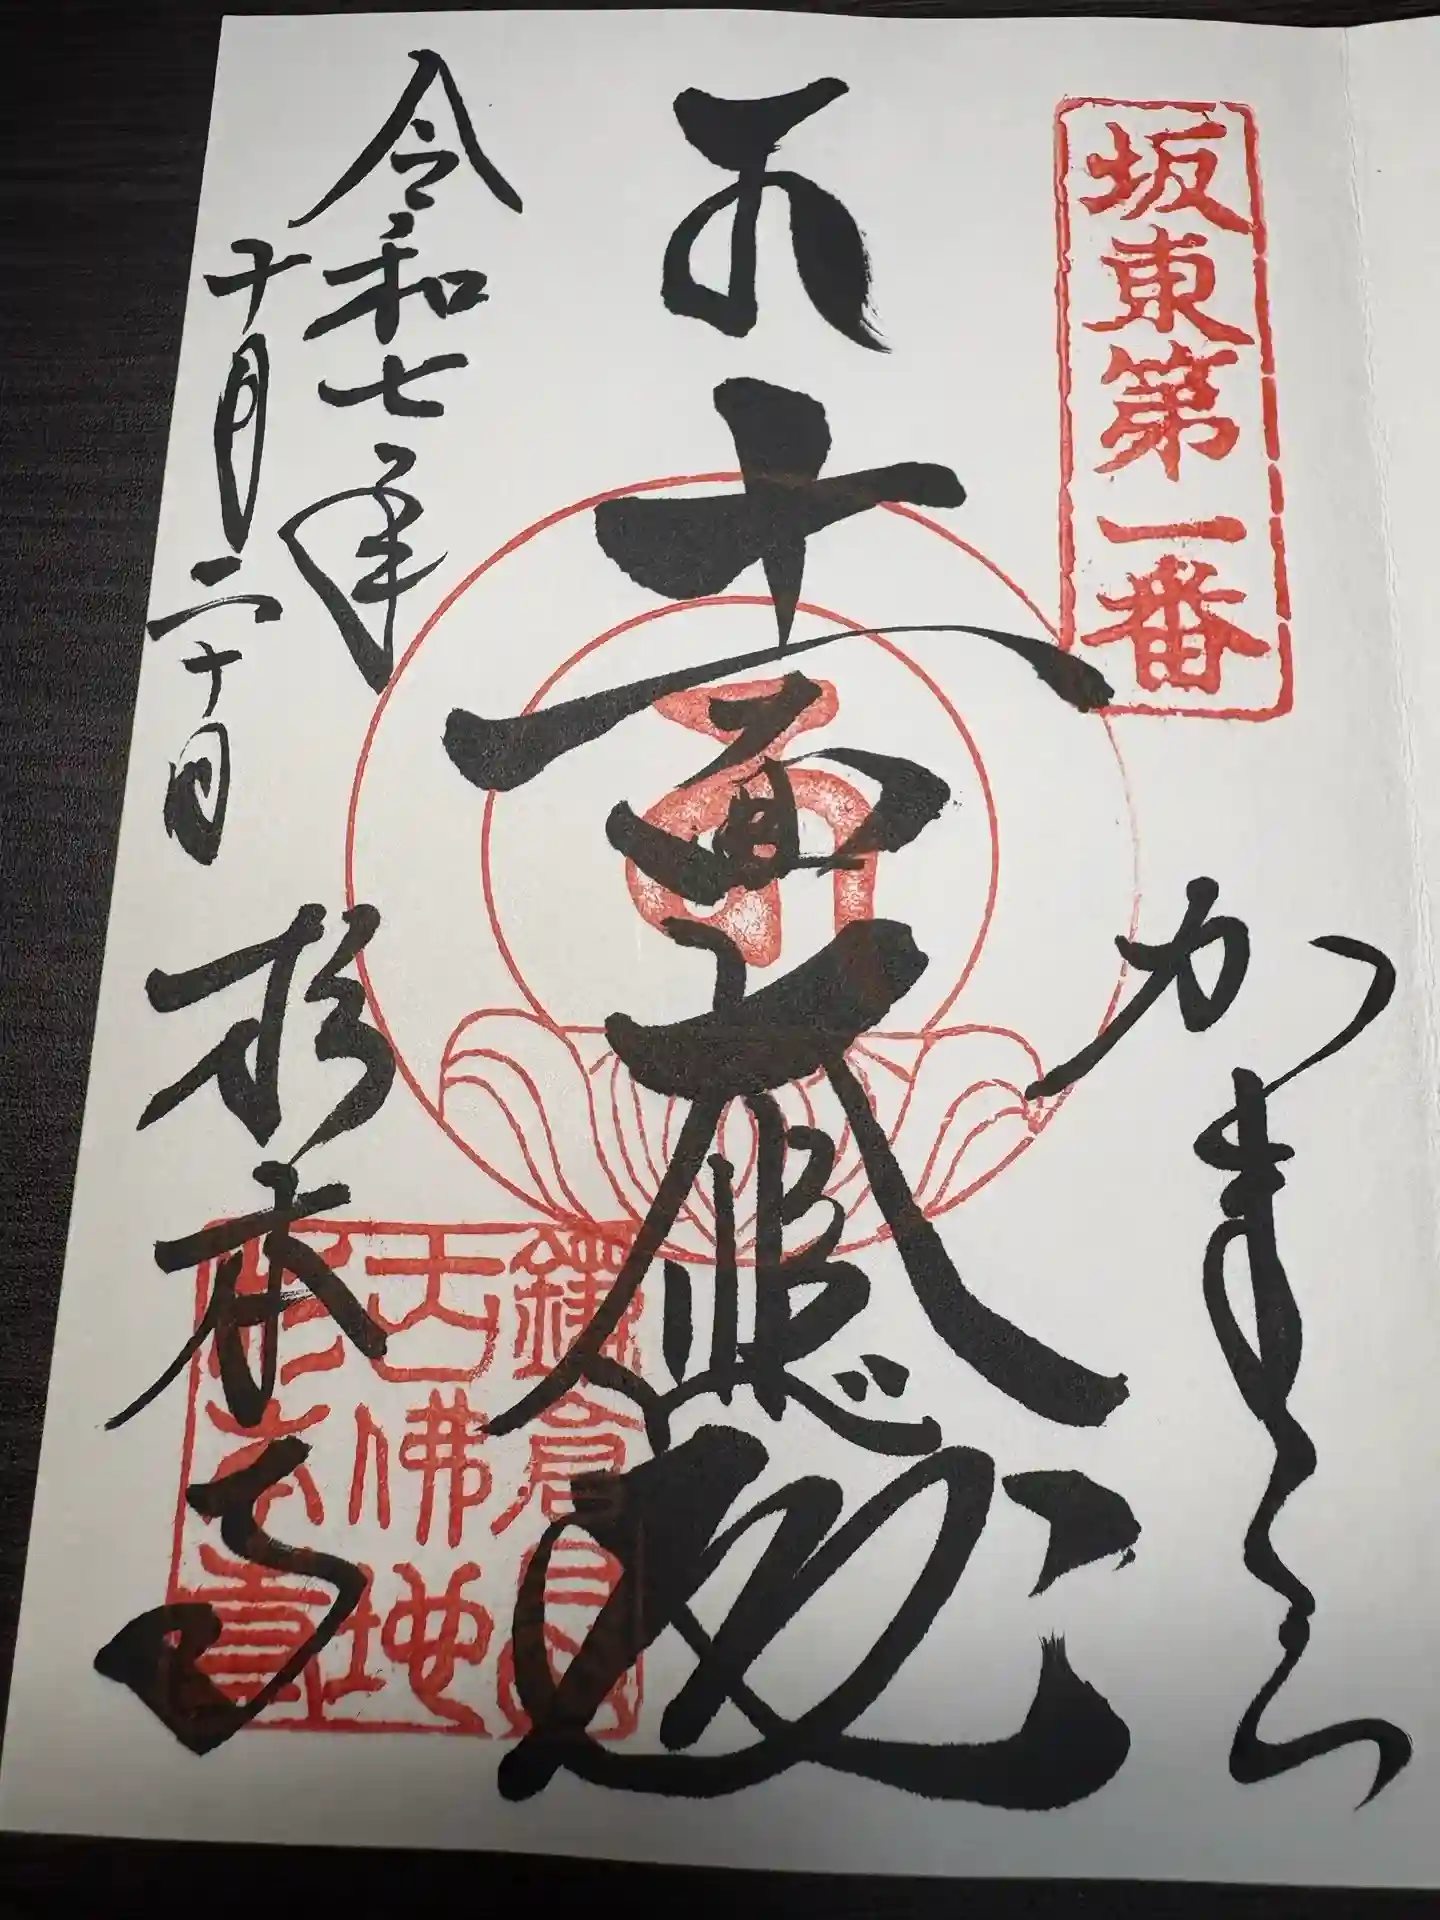 坂東第一番
かまくら
十一面大悲殿
令和七年
十月二十日
杉本寺
鎌倉
古佛地
杉本寺